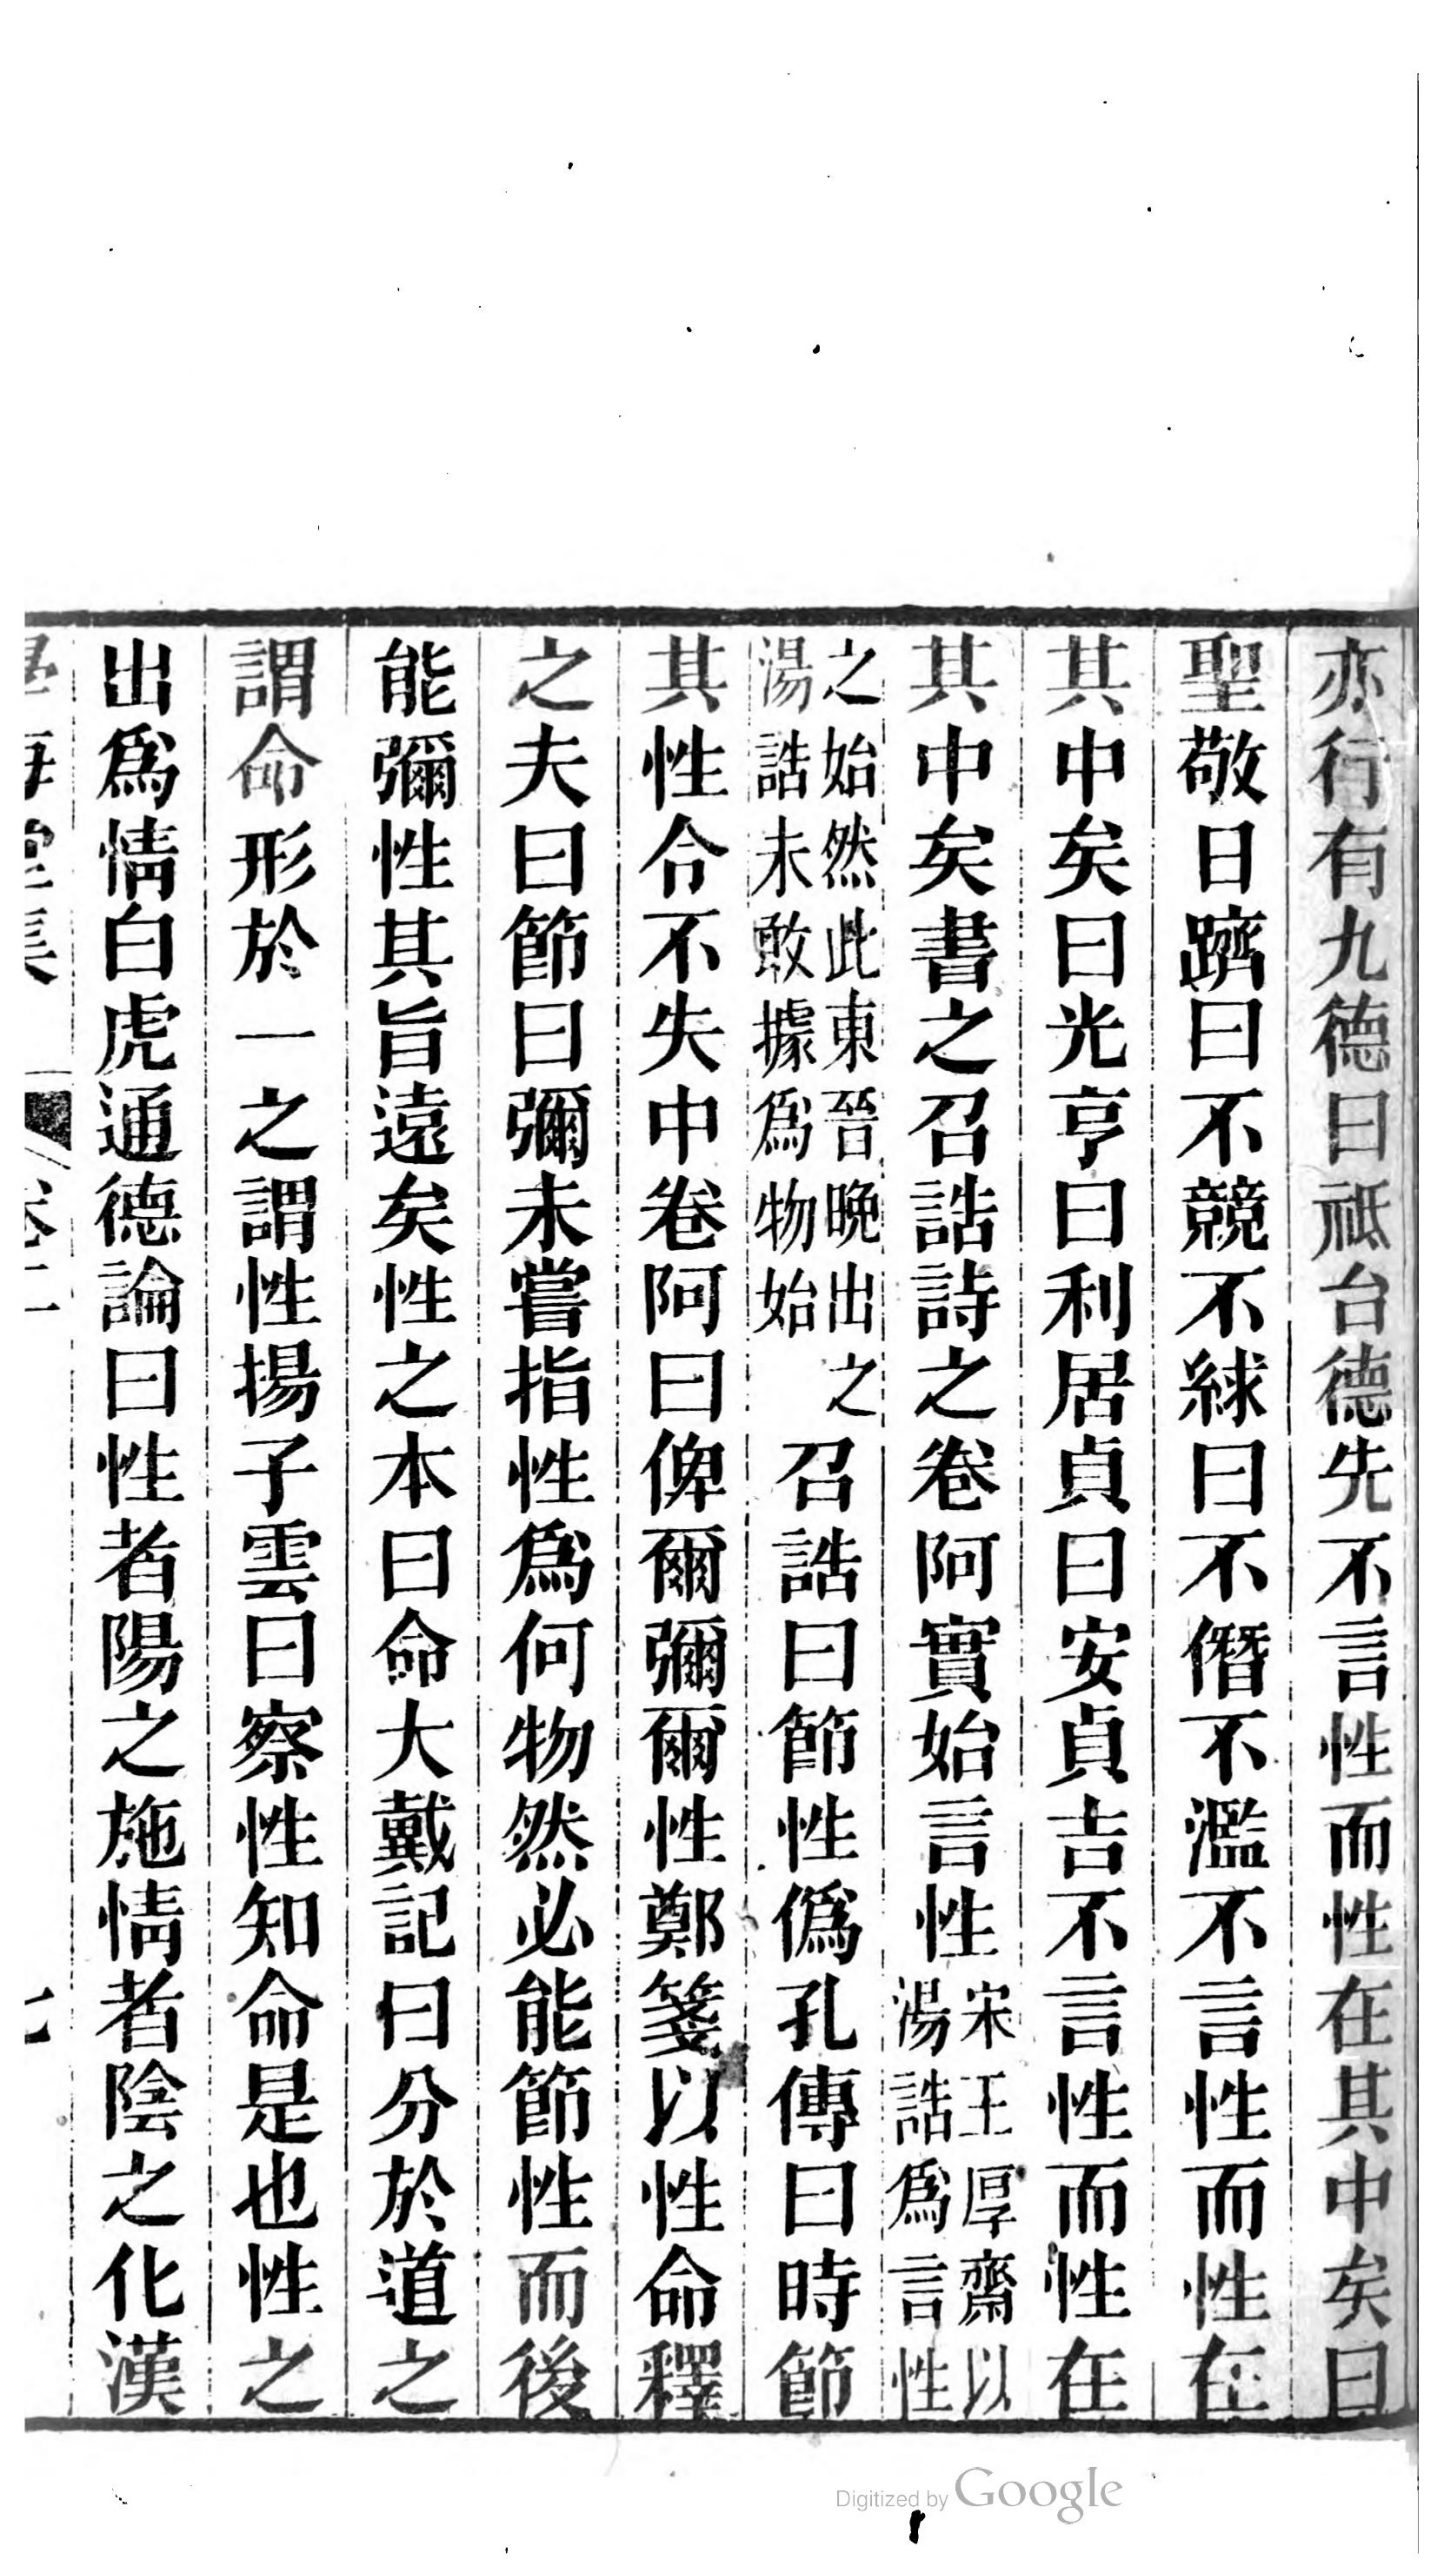 亦行有九德曰祗台德先不言性而性在其中矣曰
聖敬日躋曰不競不絿曰不僭不濫不言性而性在
其中矣曰光亨曰利居貞曰安貞吉不言性而性在
其中矣書之召誥詩之卷阿實始言性宋王厚齋以湯誥爲言性
之始然此東晉晚出之湯誥未敢據爲物始召誥曰節性僞孔傳曰時節
其性令不失中卷阿曰俾爾彌爾性鄭箋以性命釋
之夫曰節曰彌未嘗指性爲何物然必能節性而後
能彌性其旨遠矣性之本曰命大戴記曰分於道之
謂命形於一之謂性揚子雲曰察性知命是也性之
出爲情白虎通德論曰性者陽之施情者陰之化漢
學海堂集 卷二 七
Digitized by Google